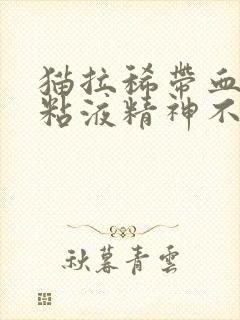 猫拉稀带血
粘液精神不
秋暮青雲